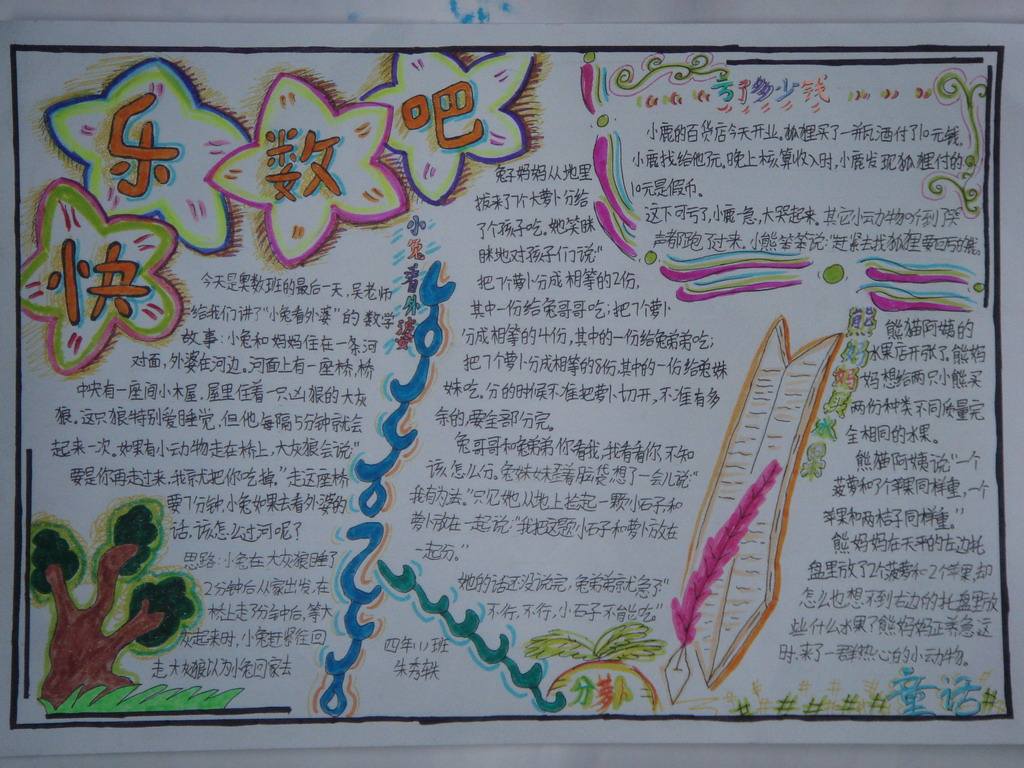 快乐数吧
小兔看外婆
今天是奥数班的最后一天,吴老师
给我们讲了“小兔看外婆”的数学
故事:小兔和妈妈住在一条河
对面,外婆在河边。河面上有一座桥,桥
中央有一座间小木屋,屋里住着一只凶狠的大灰
狼。这只狼特别爱睡觉,但他每隔5分钟就会
起来一次。如果有小动物走在桥上,大灰狼会说“
要是你再走过来,我就把你吃掉。”走这座桥
要7分钟,小兔如果去看外婆的
话,该怎么过河呢?
思路:小兔在大灰狼睡了
2分钟后从家出发,在
桥上走3分钟后,等大
灰起来时,小兔赶紧往回
走大灰狼以为小兔回家去
兔子妈妈从地里
拔来了7个大萝卜分给
了个孩子吃。她笑眯
眯地对孩子们说“
把7个萝卜分成相等的2份,
其中一份给兔哥哥吃;把7个萝卜
分成相等的4份,其中的一份给兔弟弟吃;
把7个萝卜分成相等的8份,其中的一份给兔妹
妹吃。分的时候不准把萝卜切开,不准有多
余的,要全部分完。
兔哥哥和兔弟弟你看我,我看看你,不知
该怎么分。兔妹妹歪着脑袋想了一会儿说“
我有办法。”只见她从地上拾起一颗小石子和
萝卜放在一起说:“我把这颗小石子和萝卜放在
一起分。”
她的话还没说完,兔弟弟就急了“
不行,不行,小石子不能吃。”
四年(1)班
朱秀轶
分萝卜
亏了多少钱
小鹿的百货店今天开业。狐狸买了一瓶酒付了10元钱。
小鹿找给他元。晚上核算收入时,小鹿发现狐狸付的
10元是假币。
这下可亏了,小鹿一急,大哭起来。其它小动物听到哭
声都跑了过来。小熊笨笨说:赶紧去找狐狸要回
熊妈妈买水果
熊猫阿姨的
水果店开张了。熊妈
妈想给两只小熊买
两份种类不同质量完
全相同的水果。
熊猫阿姨说“一个
菠萝和7个苹果同样重,一个
苹果和两桔子同样重。”
熊妈妈在天平的左边托
盘里放了2个菠萝和2个苹果,却
怎么也想不到右边的托盘里放
些什么水果了熊妈妈正着急这
时,来了一群热心的小动物。
童话